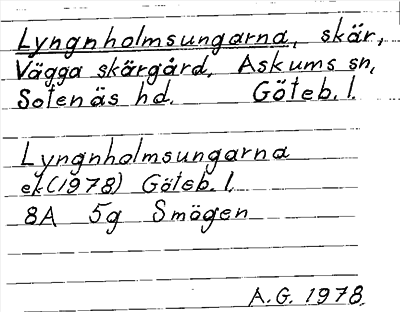 Lyngnholmsungarna, skär,
Vägga skärgård, Askums sn,
Sotenäs hd. Göteb. l.
Lyngnholmsungarna
ek (1978) Göteb. l.
8A 5g Smögen
A.G. 1978.